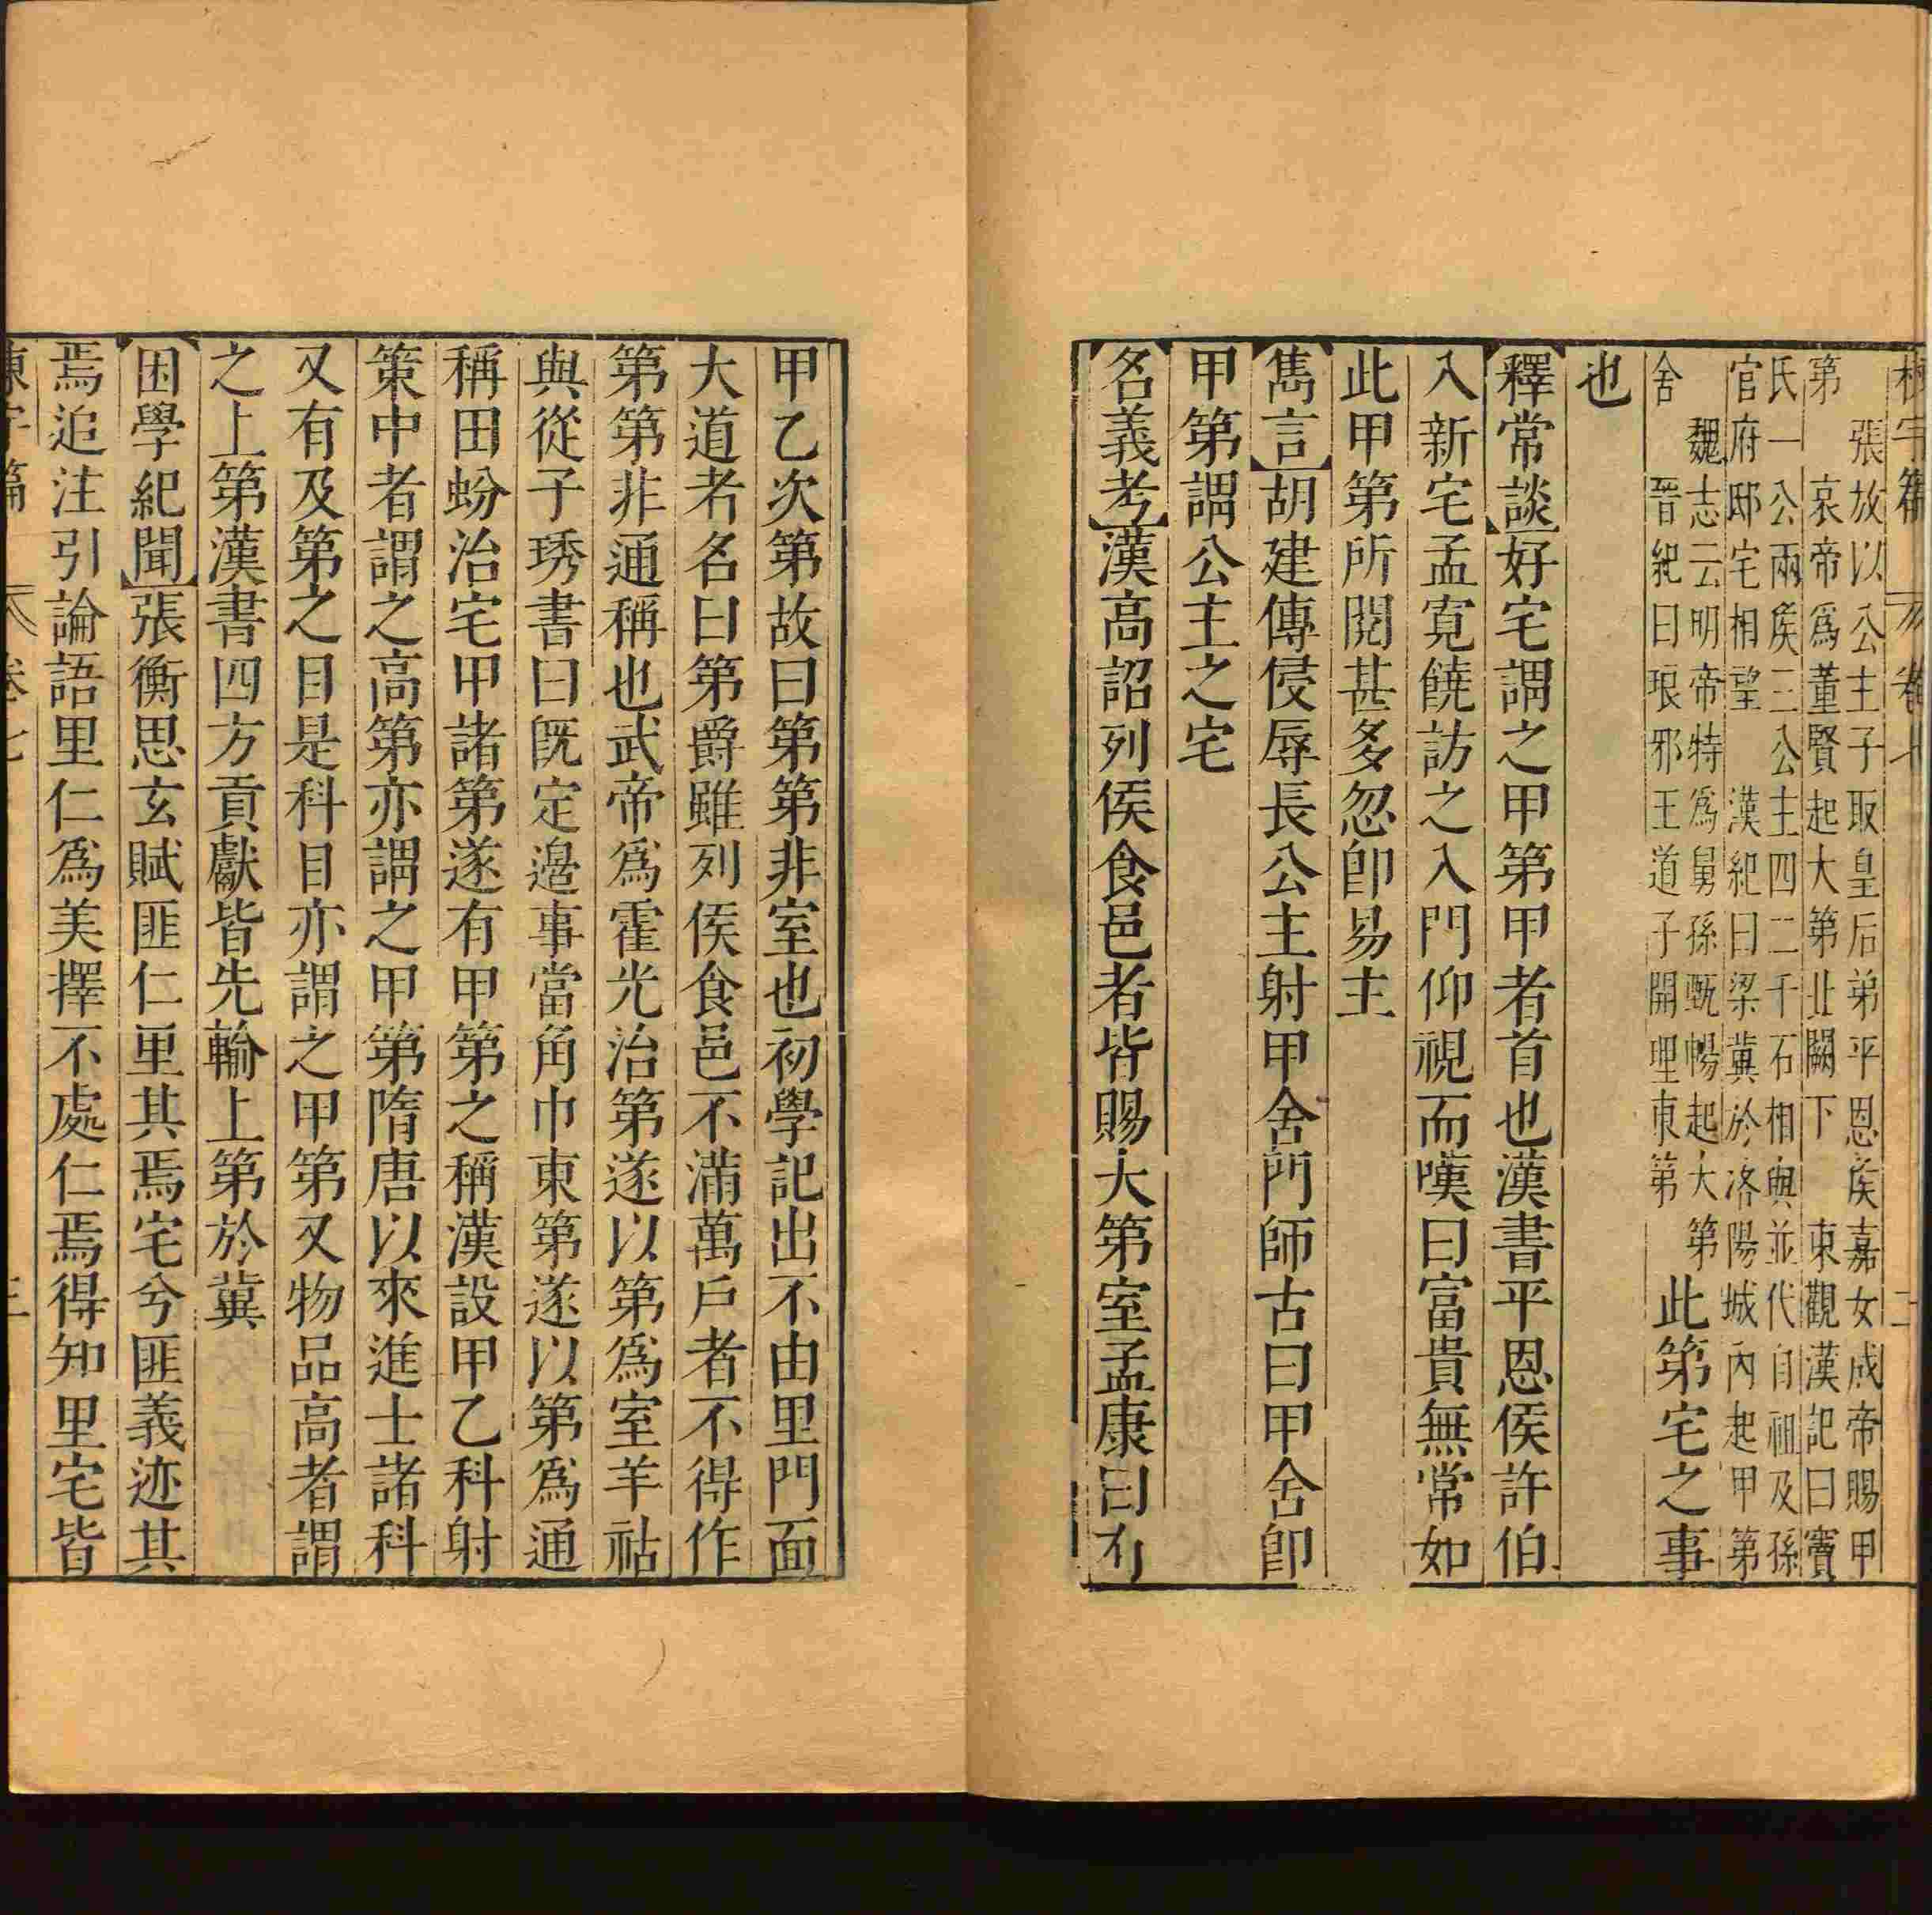 篇 卷七 二
張放以公主子取皇后弟平恩侯嘉女成帝賜甲
第 哀帝爲董賢起大第北闕下 東觀漢記曰竇
氏一公兩侯三公主四二千石相與並代自祖及孫
官府邸宅相望 漢紀曰梁冀於洛陽城內起甲第
魏志云明帝特爲舅孫甄暢起大第
舍 晉紀曰琅邪王道子開理東第 此第宅之事
也
釋常談好宅謂之甲第甲者首也漢書平恩侯許伯
入新宅孟寬饒訪之入門仰視而嘆曰富貴無常如
此甲第所閱甚多忽卽易主
雋言胡建傳侵辱長公主射甲舍門師古曰甲舍卽
甲第謂公主之宅
名義考漢高詔列侯食邑者皆賜大第室孟康曰有
甲乙次第故曰第第非室也初學記出不由里門面
大道者名曰第爵雖列侯食邑不滿萬戶者不得作
第第非通稱也武帝爲霍光治第遂以第爲室羊祜
與從子琇書曰既定邊事當角巾東第遂以第爲通
稱田蚡治宅甲諸第遂有甲第之稱漢設甲乙科射
策中者謂之高第亦謂之甲第隋唐以來進士諸科
又有及第之目是科目亦謂之甲第又物品高者謂
之上第漢書四方貢獻皆先輸上第於冀
困學紀聞張衡思玄賦匪仁里其焉宅兮匪義迹其
焉追注引論語里仁爲美擇不處仁焉得知里宅皆
篇 卷七 三